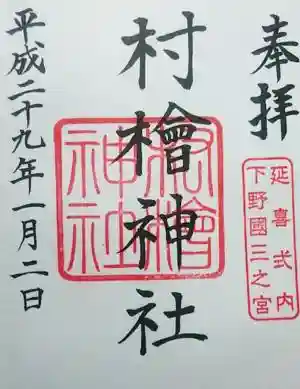 奉拝
延喜式内
下野國三之宮
村檜神社
村檜神社
平成二十九年一月二日